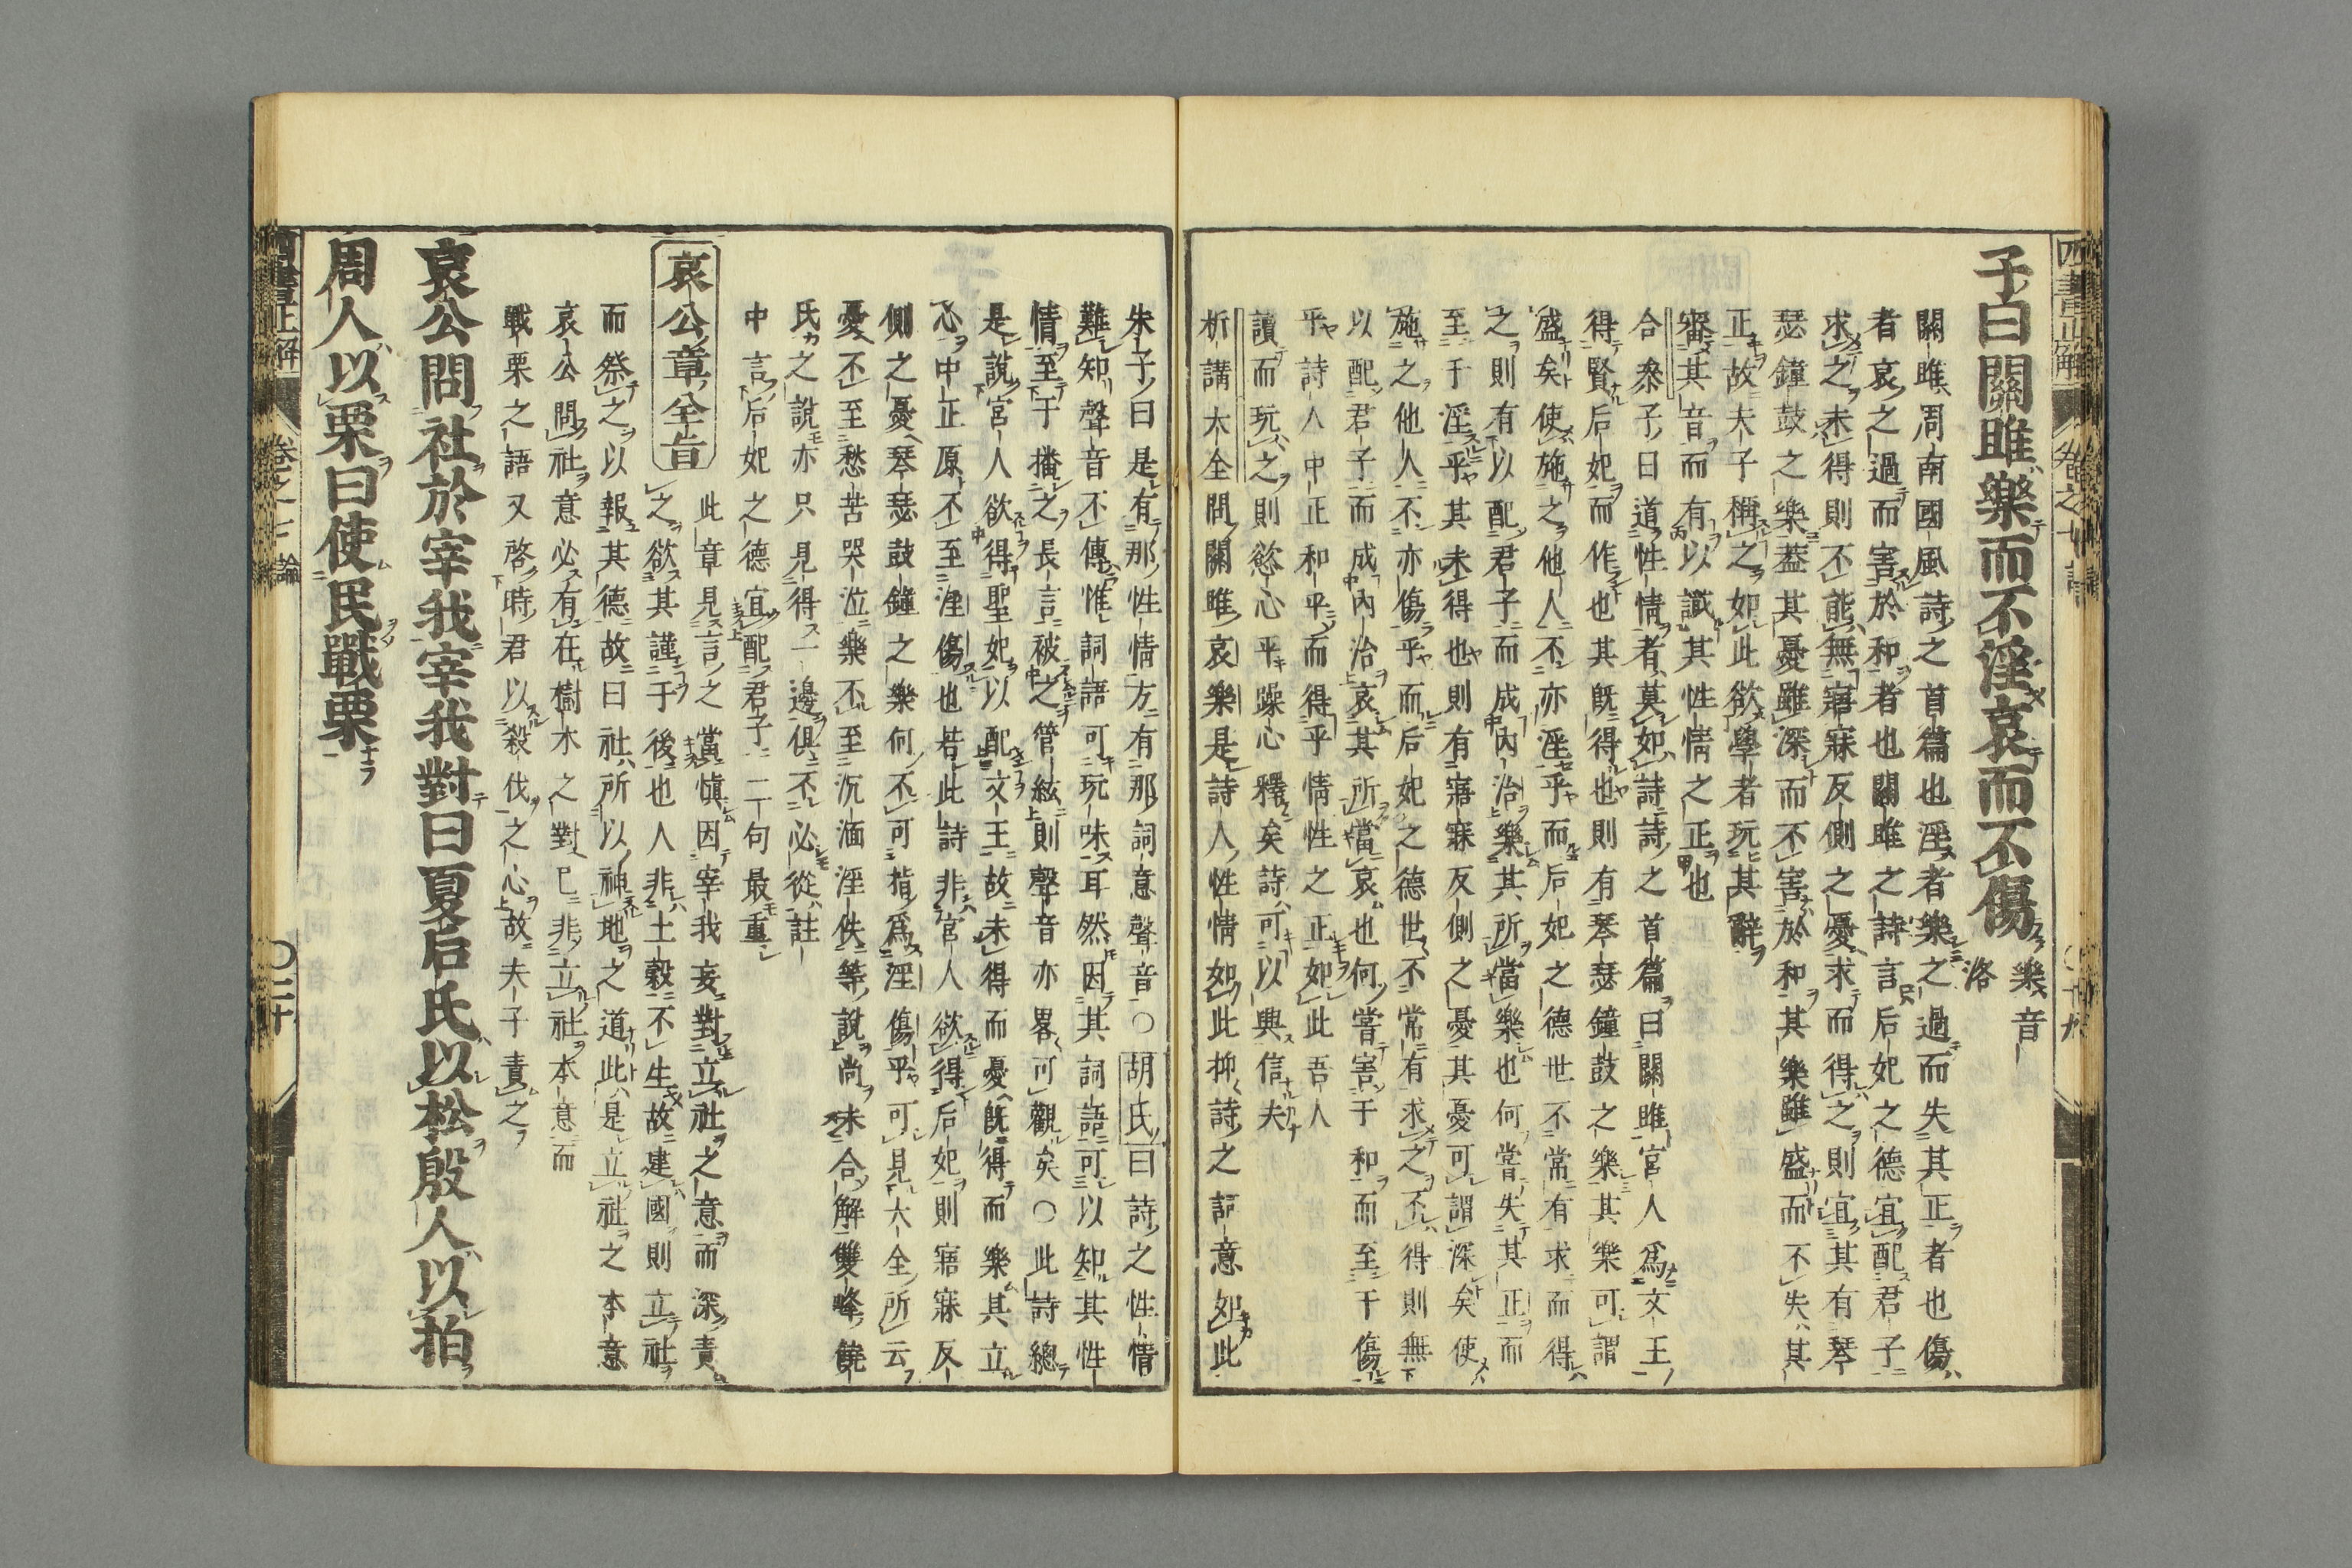 四書正解 卷之七 論 〇十九
子曰關雎樂而不淫哀而不傷 樂音洛
關雎周南國風詩之首篇也淫者樂之過而失其正者也傷
者哀之過而害於和者也關雎之詩言后妃之德宜配君子
求之未得則不能無寤寐反側之憂求而得之則宜其有琴
瑟鐘鼓之樂蓋其憂雖深而不害於和其樂雖盛而不失其
正故夫子稱之如此欲學者玩其辭
審其音而有以識其性情之正也
合參子曰道性情者莫如詩詩之首篇曰關雎宮人爲文王
得賢后妃而作也其既得也則有琴瑟鐘鼓之樂其樂可謂
盛矣使施之他人不亦淫乎而后妃之德世不常有求而得
之則有以配君子而成內治樂其所當樂也何嘗失其正而
至于淫乎其未得也則有寤寐反側之憂其憂可謂深矣使
施之他人不亦傷乎而后妃之德世不常有求之不得則無
以配君子而成內治哀其所當哀也何嘗害于和而至于傷
乎詩人中正和平而得乎情性之正如此吾人
讀而玩之則慾心平躁心釋矣詩可以興信夫
析講大全問關雎哀樂是詩人性情如此抑詩之詞意如此
朱子曰是有那性情方有那詞意聲音〇胡氏曰詩之性情
難知聲音不傳惟詞語可玩味耳然因其詞語可以知其性
情至于播之長言被之管絃則聲音亦畧可觀矣〇此詩總
是說宮人欲得聖妃以配文王故未得而憂既得而樂其立
心中正原不至淫傷也若此詩非宮人欲得后妃則寤寐反
側之憂琴瑟鼓鐘之樂何不可指爲淫傷乎可見大全所云
憂不至愁苦哭泣樂不至沉湎淫佚等說尚未合解雙峰饒
氏之說亦只見得一邊俱不必從註
中言后妃之德宜配君子二句最重
哀公章全旨 此章見言之當慎因宰我妄對立社之意而深責
之欲其謹于後也人非土穀不生故建國則立社
而祭之以報其德故曰社所以神地之道此是立社之本意
哀公問社意必有在樹木之對已非立社本意而
戰栗之語又啓時君以殺伐之心故夫子責之
哀公問社於宰我宰我對曰夏后氏以松殷人以柏
周人以栗曰使民戰栗
四書正解 卷之七 論 〇二十